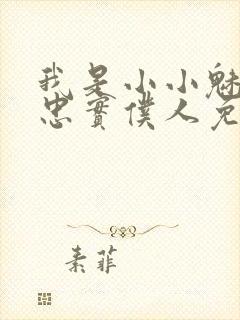 我是小小魅
忠實僕人免
素菲